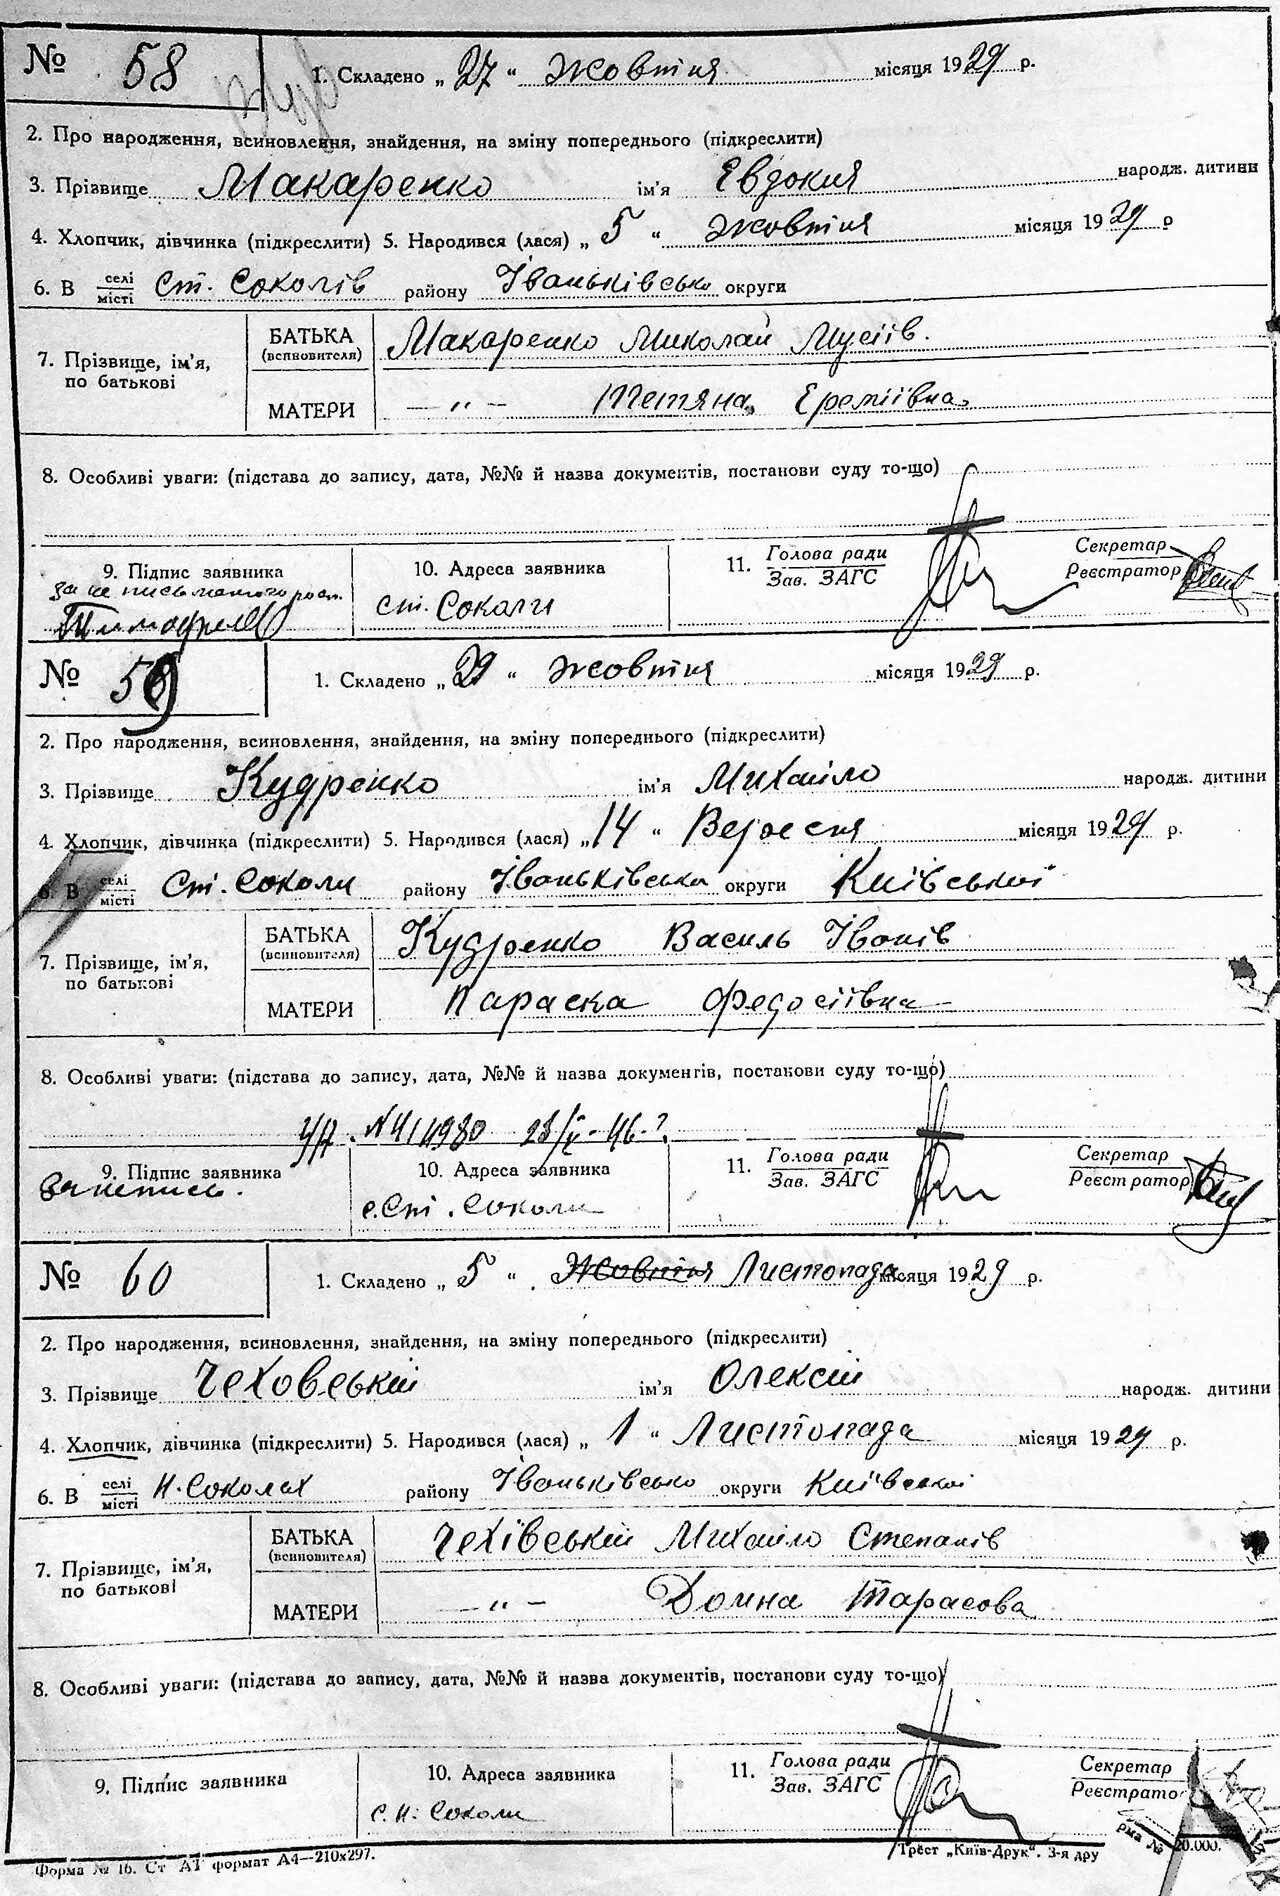 № 58 1. Складено „ 27 “ жовтня місяця 1929 р.
2. Про народження, всиновлення, знайдення, на зміну попереднього (підкреслити)
3. Прізвище Макаренко ім'я Евдокия народж. дитини
4. Хлопчик, дівчинка (підкреслити) 5. Народився (лася) „ 5 “ жовтня місяця 1929 р
6. В селі місті Ст. Соколів району Іваньківсько округи
7. Прізвище, ім'я, по батькові
БАТЬКА (всиновителя) Макаренко Миколай Мусіїв.
МАТЕРИ — „ — Тетяна Ереміївна
8. Особливі уваги: (підстава до запису, дата, №№ й назва документів, постанови суду то-що)
9. Підпис заявника 10. Адреса заявника 11. Голова ради Зав. ЗАГС Секретар Реєстратор
за не письменного
ст. Соколи
№ 59 1. Складено „ 29 “ жовтня місяця 1929 р.
2. Про народження, всиновлення, знайдення, на зміну попереднього (підкреслити)
3. Прізвище Кудренко ім'я Михайло народж. дитини
4. Хлопчик, дівчинка (підкреслити) 5. Народився (лася) „ 14 “ Вересня місяця 1929 р.
6. В селі місті Ст. Соколи району Іваньківсько округи Київської
7. Прізвище, ім'я, по батькові
БАТЬКА (всиновителя) Кудренко Василь Іванів
МАТЕРИ Параска Федосіївна
8. Особливі уваги: (підстава до запису, дата, №№ й назва документів, постанови суду то-що)
9. Підпис заявника 10. Адреса заявника 11. Голова ради Зав. ЗАГС Секретар Реєстратор
с. Ст. Соколи
№ 60 1. Складено „ 5 “ Жовтня Листопада місяця 1929 р.
2. Про народження, всиновлення, знайдення, на зміну попереднього (підкреслити)
3. Прізвище Чеховський ім'я Олексій народж. дитини
4. Хлопчик, дівчинка (підкреслити) 5. Народився (лася) „ 1 “ Листопада місяця 1929 р.
6. В селі місті Н. Соколах району Іваньківсько округи Київської
7. Прізвище, ім'я, по батькові
БАТЬКА (всиновителя) Чехівській Михайло Степанів
МАТЕРИ — „ — Домна Тарасова
8. Особливі уваги: (підстава до запису, дата, №№ й назва документів, постанови суду то-що)
9. Підпис заявника 10. Адреса заявника 11. Голова ради Зав. ЗАГС Секретар Реєстрато
с. Н. Соколи
Форма № 16. Ст А1 формат А4—210х297. Трест „Київ-Друк“. 3-я дру рма № 20.000.